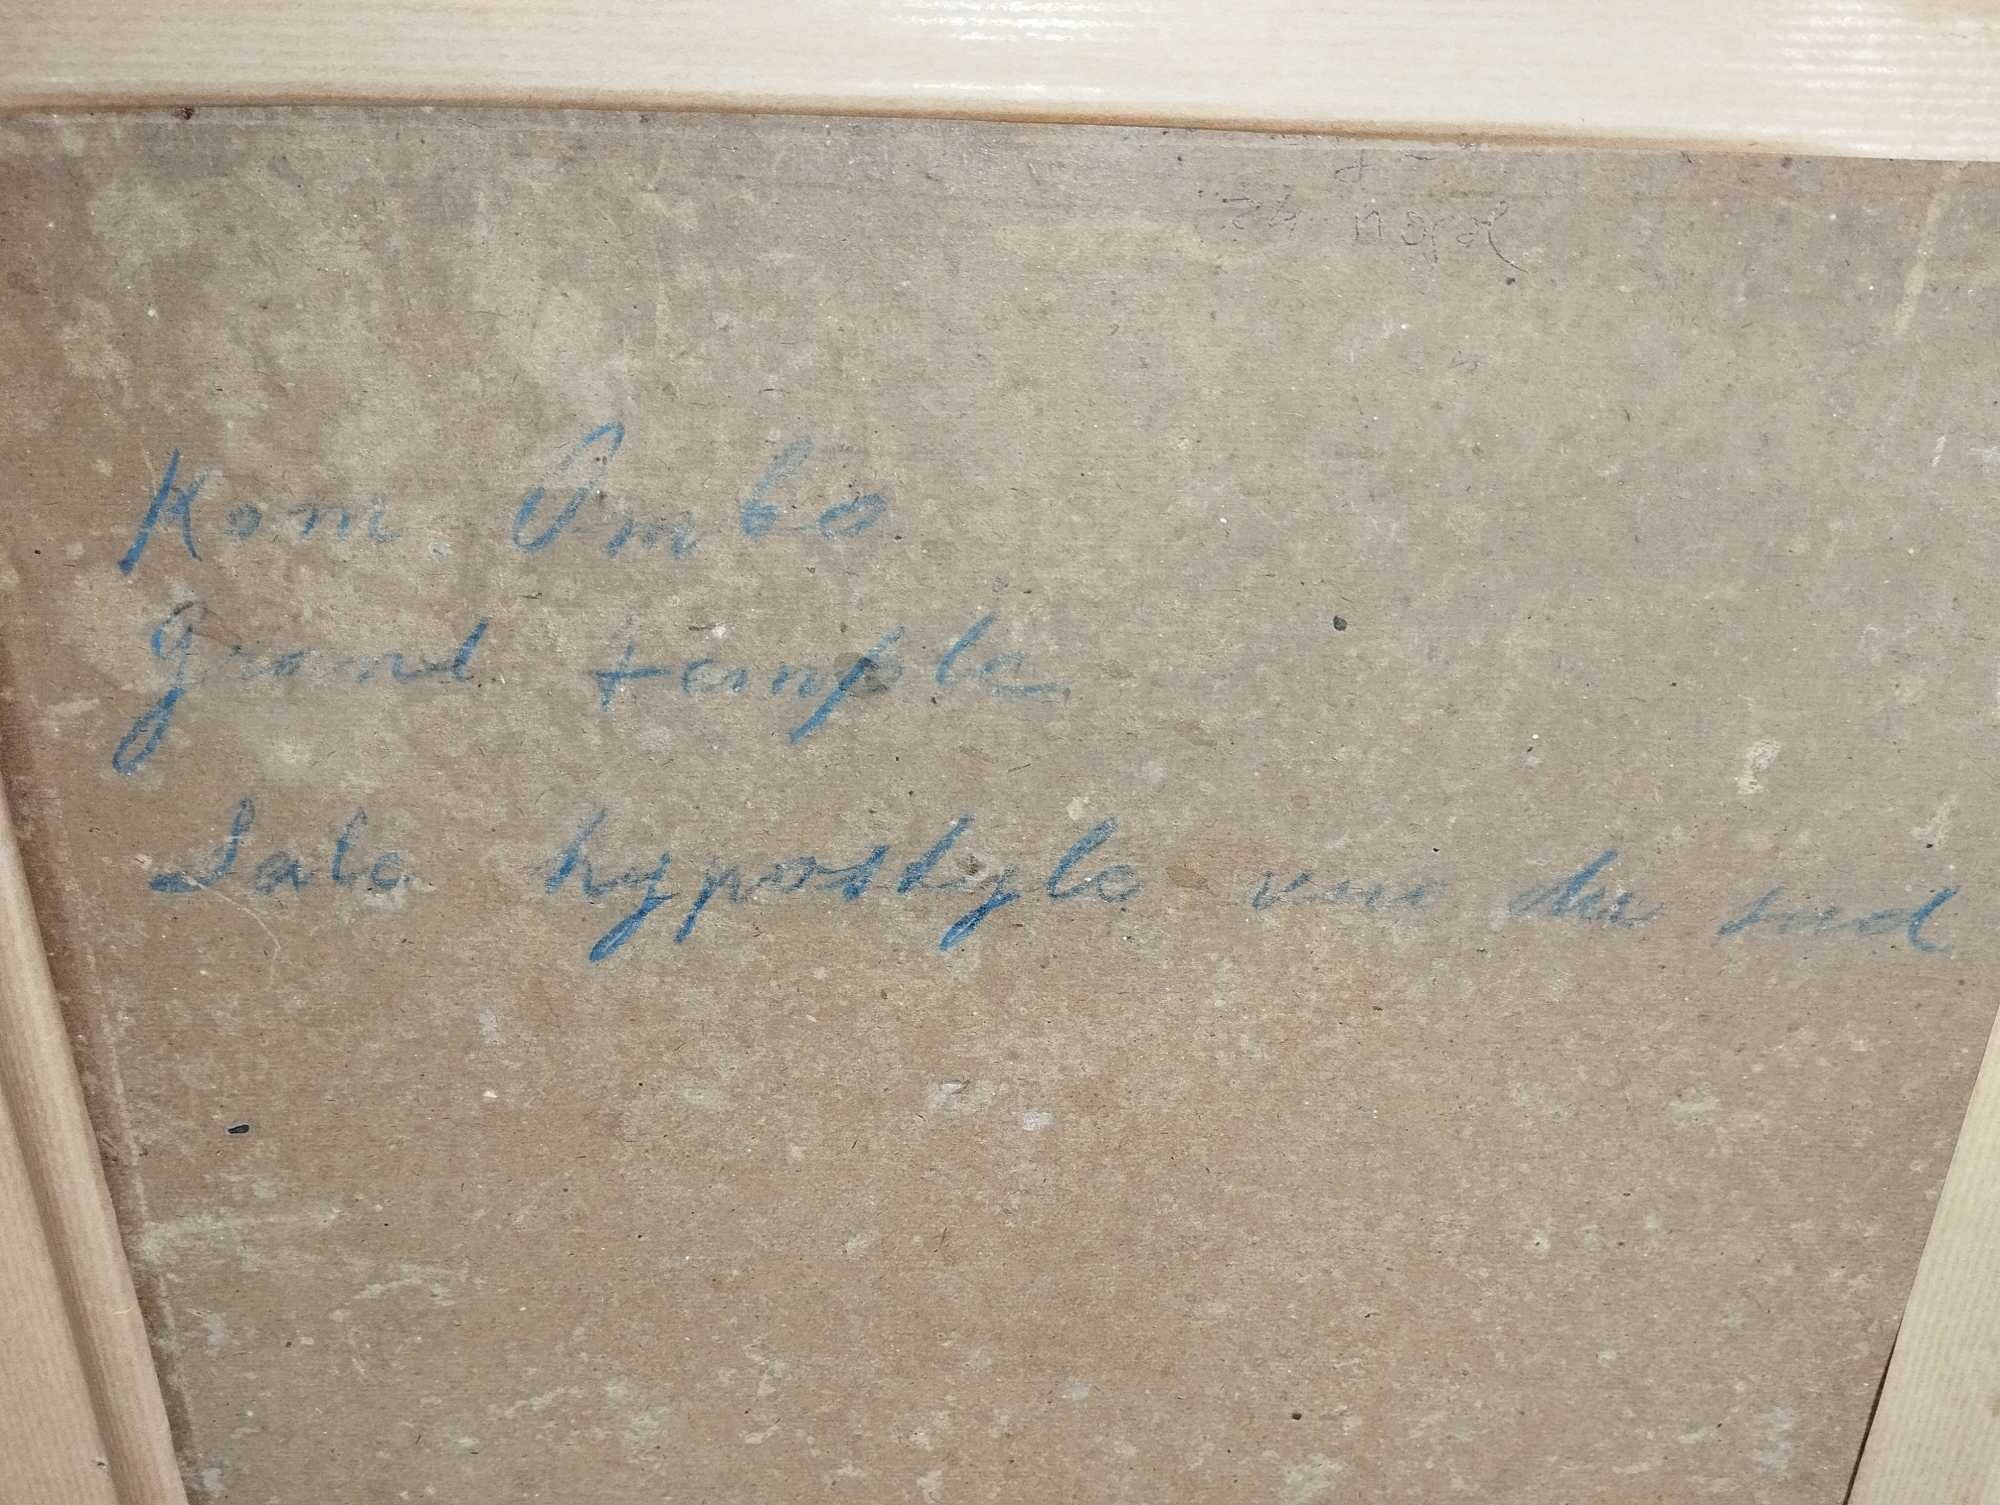 Kom Ombo
Grand temple
Sale hypostyle vue du sud